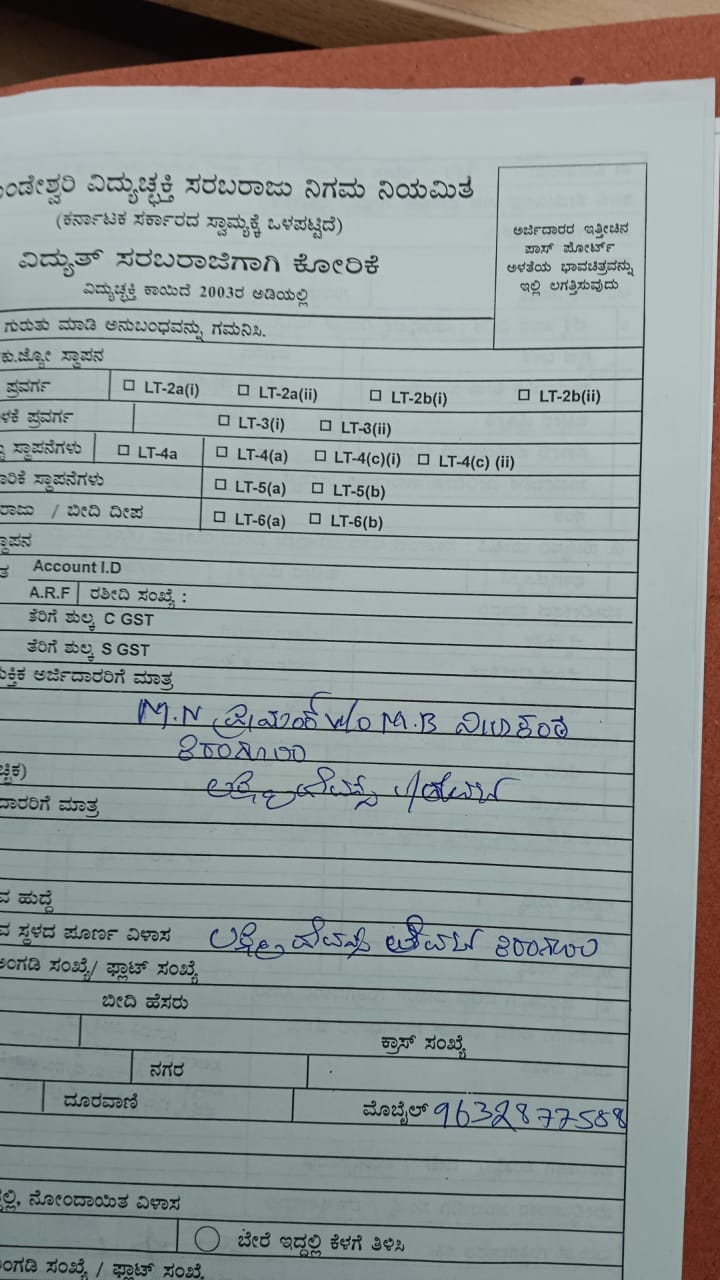 ವಿದ್ಯುಚ್ಛಕ್ತಿ ಸರಬರಾಜು ನಿಗಮ ನಿಯಮಿತ
(ಕರ್ನಾಟಕ ಸರ್ಕಾರದ ಸ್ವಾಮ್ಯಕ್ಕೆ ಒಳಪಟ್ಟಿದೆ)
ವಿದ್ಯುತ್ ಸರಬರಾಜಿಗಾಗಿ ಕೋರಿಕೆ
ವಿದ್ಯುಚ್ಛಕ್ತಿ ಕಾಯಿದೆ 2003ರ ಅಡಿಯಲ್ಲಿ
ಅರ್ಜಿದಾರರ ಇತ್ತೀಚಿನ
ಪಾಸ್ ಪೋರ್ಟ್
ಅಳತೆಯ ಭಾವಚಿತ್ರವನ್ನು
ಇಲ್ಲಿ ಲಗತ್ತಿಸುವುದು
ಗುರುತು ಮಾಡಿ ಅನುಬಂಧವನ್ನು ಗಮನಿಸಿ.
ಕು.ಜ್ಯೋ ಸ್ಥಾಪನ
ಪ್ರವರ್ಗ LT-2a(i) LT-2a(ii) LT-2b(i) LT-2b(ii)
ಳಕೆ ಪ್ರವರ್ಗ LT-3(i) LT-3(ii)
ಸ್ಥಾಪನೆಗಳು LT-4a LT-4(a) LT-4(c)(i) LT-4(c) (ii)
ಾರಿಕೆ ಸ್ಥಾಪನೆಗಳು LT-5(a) LT-5(b)
ರಾಜು / ಬೀದಿ ದೀಪ LT-6(a) LT-6(b)
ಸ್ಥಾಪನ
Account I.D
A.R.F ರಶೀದಿ ಸಂಖ್ಯೆ :
ತೆರಿಗೆ ಶುಲ್ಕ C GST
ತೆರಿಗೆ ಶುಲ್ಕ S GST
ಅರ್ಜಿದಾರರಿಗೆ ಮಾತ್ರ
M.N W/O M.B
ದಾರರಿಗೆ ಮಾತ್ರ
ವ ಹುದ್ದೆ
ವ ಸ್ಥಳದ ಪೂರ್ಣ ವಿಳಾಸ
ಅಂಗಡಿ ಸಂಖ್ಯೆ/ ಫ್ಲಾಟ್ ಸಂಖ್ಯೆ
ಬೀದಿ ಹೆಸರು
ಕ್ರಾಸ್ ಸಂಖ್ಯೆ
ನಗರ
ದೂರವಾಣಿ ಮೊಬೈಲ್ 9632877588
ನೋಂದಾಯಿತ ವಿಳಾಸ
ಬೇರೆ ಇದ್ದಲ್ಲಿ ಕೆಳಗೆ ತಿಳಿಸಿ
ಂಗಡಿ ಸಂಖ್ಯೆ / ಫ್ಲಾಟ್ ಸಂಖ್ಯೆ